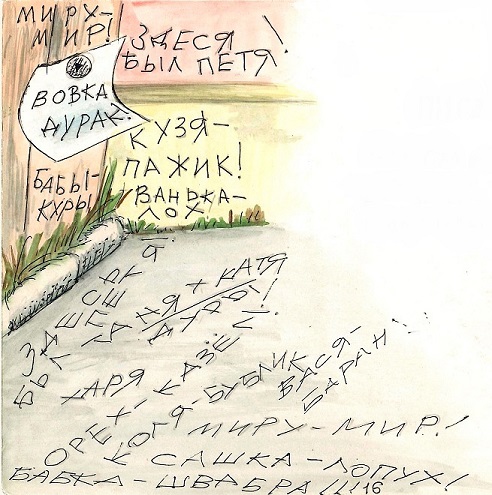 МИРУ-
МИР!
ЗДЕСЯ
БЫЛ ПЕТЯ!
ВОВКА
ДУРАК!
КУЗЯ-
ПАЖИК!
БАБЫ-
КУРЫ
ВАНЬКА-
ЛОХ
ЗДЕСЬ
БЫЛ
+ КАТЯ
ДУРЫ!
ХАРЯ
ОРЕХ-КАЗЁЛ!
КОЛЯ-БУБЛИК
ВАСЯ-
БАРАН!
МИРУ-МИР!
САШКА-ЛОПУХ!
БАБКА-ШВАБРА!!!16